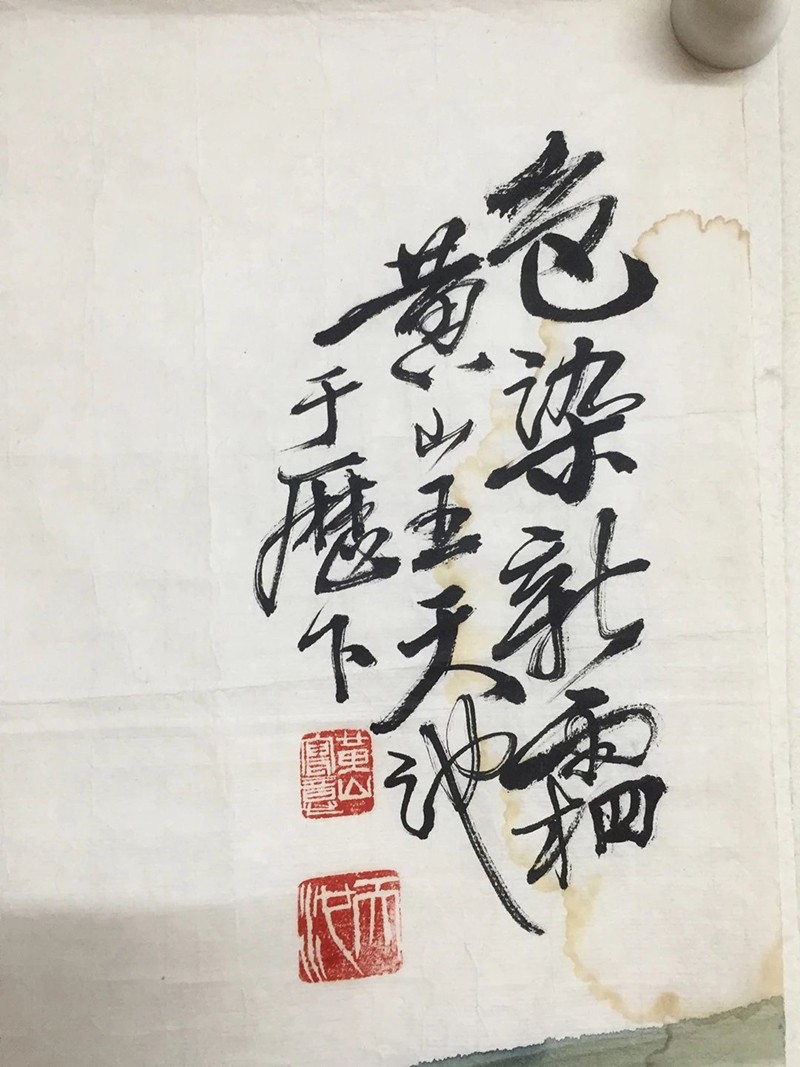 色染新霜
黄山王天池
于歷下
黄山
天池